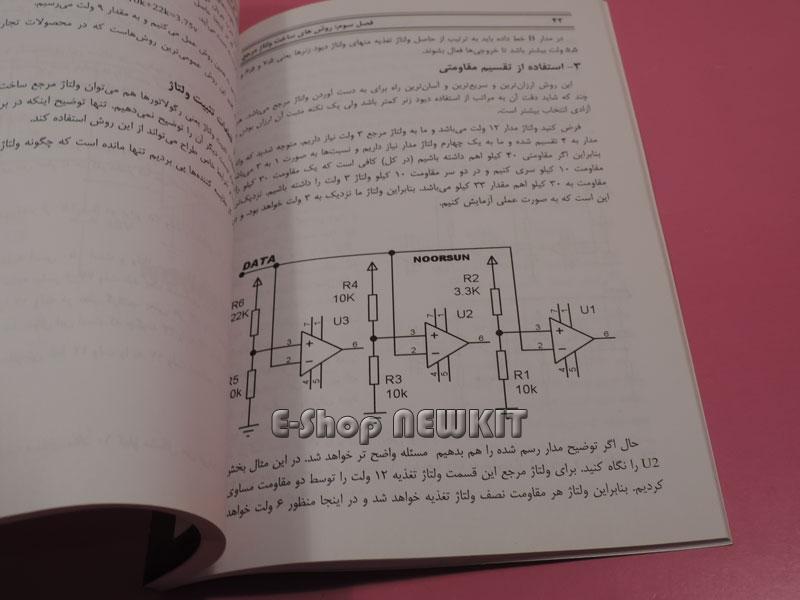 ۴۲ فصل سوم: روش های ساخت ولتاژ مرجع
در مدار B خط داده باید به ترتیب از حاصل ولتاژ تغذیه منهای ولتاژ دیود زنرها یعنی
ولت بیشتر باشد تا خروجی‌ها فعال بشوند.
۳- استفاده از تقسیم مقاومتی
این روش ارزان‌ترین و سریع‌ترین و آسان‌ترین راه برای به دست آوردن ولتاژ مرجع می‌باشد. هر
چند که شاید دقت آن به مراتب از استفاده دیود زنر کمتر باشد ولی یک نکته مثبت آن ارزان بودن
آزادی انتخاب بیشتر است.
فرض کنید ولتاژ مدار ۱۲ ولت می‌باشد و ما به ولتاژ مرجع ۳ ولت نیاز داریم، متوجه شدید که
مدار به ۴ تقسیم شده و ما به یک چهارم ولتاژ مدار نیاز داریم و نسبت‌ها به صورت ۱ به ۳
بنابراین اگر مقاومتی ۴۰ کیلو اهم داشته باشیم (در کل) کافی است که یک مقاومت ۳۰ کیلو
مقاومت ۱۰ کیلو سری کنیم و در دو سر مقاومت ۱۰ کیلو ولتاژ ۳ ولت را داشته باشیم.
مقاومت به ۳۰ کیلو اهم مقدار ۳۳ کیلو می‌باشد. بنابراین ولتاژ ما نزدیک به ۳ ولت خواهد بود. و
این است که به صورت عملی آزمایش کنیم.
DATA
NOORSUN
R6
22K
U3
R4
10K
U2
R2
3.3K
U1
R5
0k
R3
10k
R1
10k
E-Shop NEWKIT
حال اگر توضیح مدار رسم شده را هم بدهیم مسئله واضح تر خواهد شد. در این مثال بخش
U2 را نگاه کنید. برای ولتاژ مرجع این قسمت ولتاژ تغذیه ۱۲ ولت را توسط دو مقاومت مساوی
کردیم. بنابراین ولتاژ هر مقاومت نصف ولتاژ تغذیه خواهد شد و در اینجا منظور ۶ ولت خواهد
0k+22k=3.75v
عمل می کنیم و به مقدار ۹ ولت می‌رسیم.
روش عمومی‌ترین روش‌هاست که در محصولات تجار
تثبیت ولتاژ
ولتاژ یعنی رگولاتورها هم می‌توان ولتاژ مرجع ساخت
دیگر آن را توضیح نمی‌دهیم. تنها توضیح اینکه در بر
طراح می‌تواند از این روش استفاده کند.
کننده‌ها پی بردیم تنها مانده است که چگونه ولتاژ